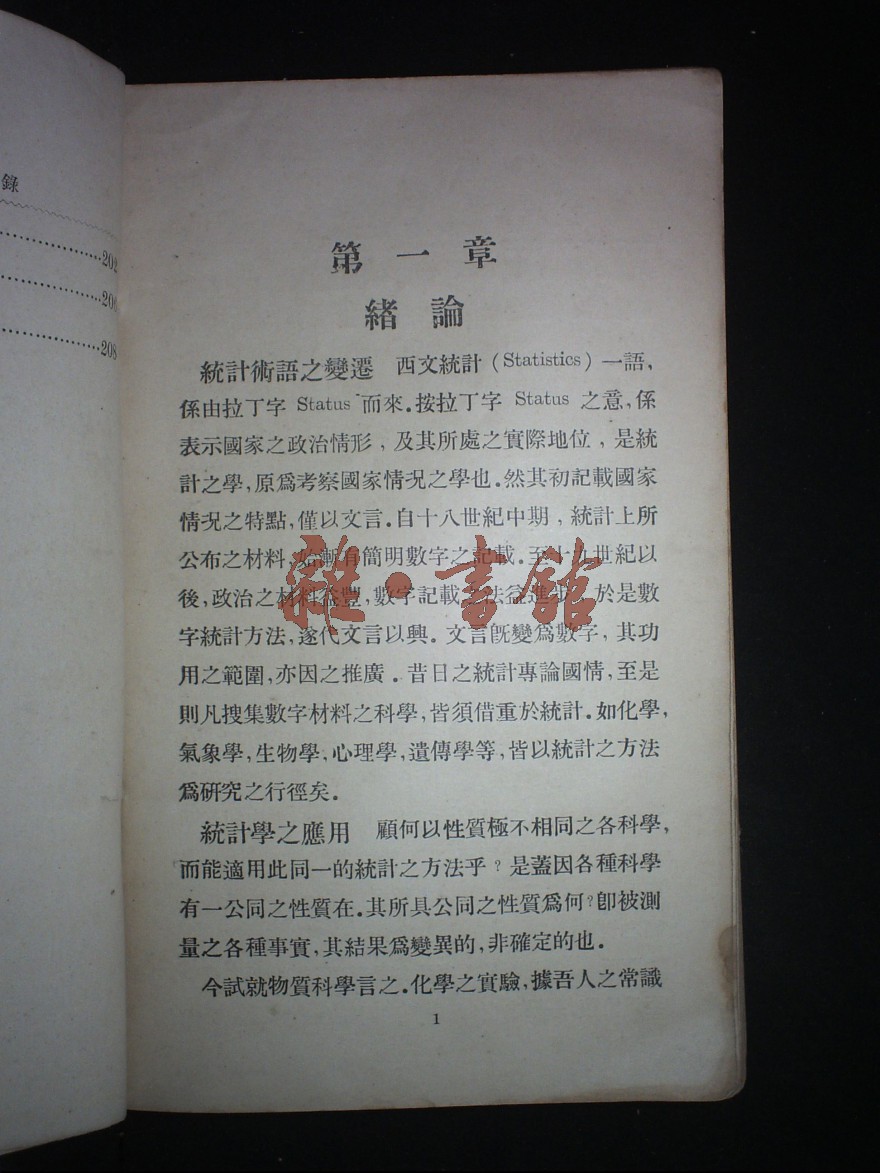 錄
202
206
208
第一章
緒論
統計術語之變遷 西文統計(Statistics)一語,
係由拉丁字 Status 而來.按拉丁字 Status 之意,係
表示國家之政治情形,及其所處之實際地位,是統
計之學,原爲考察國家情况之學也.然其初記載國家
情况之特點,僅以文言.自十八世紀中期,統計上所
公布之材料,始漸有簡明數字之記載.至十九世紀以
後,政治之材料益豐,數字記載之法益進步,於是數
字統計方法,遂代文言以興.文言旣變爲數字,其功
用之範圍,亦因之推廣.昔日之統計專論國情,至是
則凡搜集數字材料之科學,皆須借重於統計.如化學,
氣象學,生物學,心理學,遺傳學等,皆以統計之方法
爲研究之行徑矣.
統計學之應用 顧何以性質極不相同之各科學,
而能適用此同一的統計之方法乎?是蓋因各種科學
有一公同之性質在.其所具公同之性質爲何?卽被測
量之各種事實,其結果爲變異的,非確定的也.
今試就物質科學言之.化學之實驗,據吾人之常識
1
雜·書館